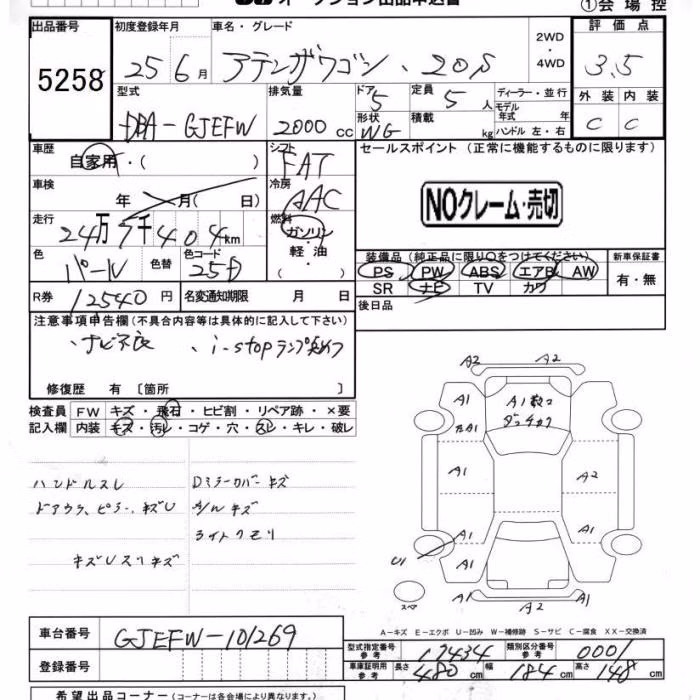 オークション出品申込書
①会場控
出品番号 初度登録年月 車名・グレード 2WD・4WD 評価点
5258 25 6月 アテンザワゴン、20S 3.5
型式 排気量 ドア 定員 ディーラー・並行 外装 内装
DBA-GJEFW 2000cc 5 5人 モデル年式 年 C C
形状 積載
WG kg ハンドル 左・右
車歴 シフト セールスポイント (正常に機能するものに限ります)
自家用・( ) FAT
車検 冷房
年 月( 日) AAC NOクレーム・売切
走行 燃料
24万7千404km ガソリン・軽油・( )
色 色替 色コード 装備品 (純正品に限り○をつけてください) 新車保証書
パール 25D PS PW ABS エアB AW 有・無
SR ナビ TV カワ
R券 12540円 名変通知期限 月 日 後日品
注意事項申告欄 (不具合内容等は具体的に記入して下さい)
、ナビ不良 、i-stopランプ点灯
修復歴 有 〔箇所 〕
検査員 FW キズ・飛石・ヒビ割・リペア跡・×要
記入欄 内装 キズ・汚レ・コゲ・穴・スレ・キレ・破レ
ハンドルスレ Dミラーカバーキズ
ドアウラ、ピラー、キズU A/Wキズ
ライトクモリ
キズUスリキズ
A2 A2
A1 A1 A1
A1
A1 A2
A1 A1
U1
A1 A1
スペア
A-キズ E-エクボ U-凹み W-補修跡 S-サビ C-腐食 XX-交換済
車台番号 GJEFW-101269
型式指定番号 参考 17434 類別区分番号 参考 0001
登録番号 車庫証明用 参考 長さ 480cm 幅 184cm 高さ 148cm
希望出品コーナー (コーナーは各会場により異なります。